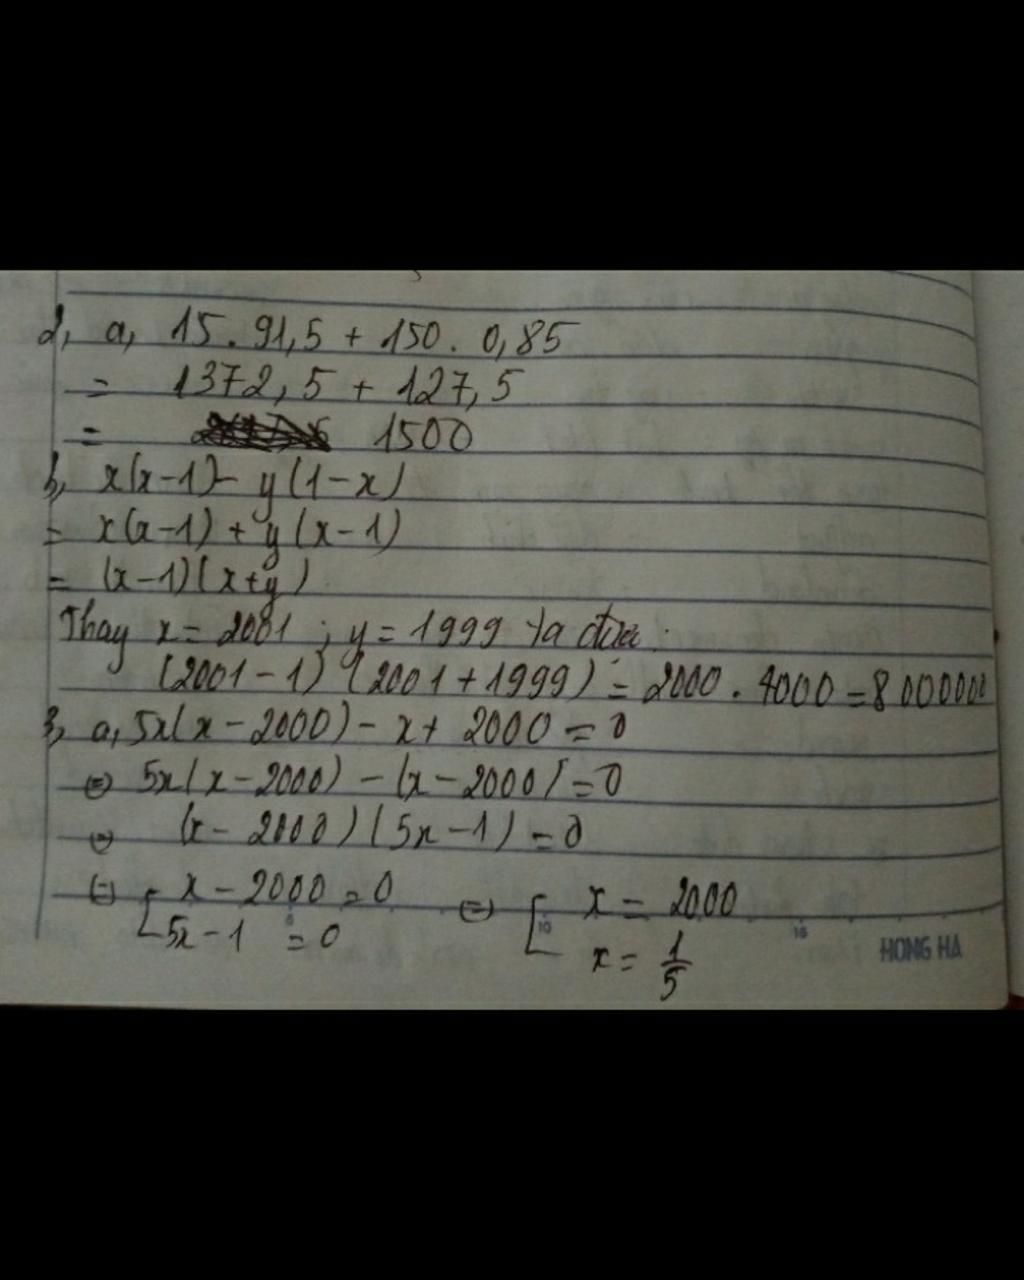 2, a, 15 . 91,5 + 150 . 0,85
= 1372,5 + 127,5
= 1500
b, x(x-1) - y(1-x)
= x(x-1) + y(x-1)
= (x-1)(x+y)
Thay x = 2001 ; y = 1999 ta được:
(2001-1) (2001+1999) = 2000 . 4000 = 8000000
3, a, 5x(x-2000) - x + 2000 = 0
⇔ 5x(x-2000) - (x-2000) = 0
⇔ (x-2000)(5x-1) = 0
⇔ [ x - 2000 = 0 ⇔ [ x = 2000
5x - 1 = 0 x = 1/5
10 15 HONG HA